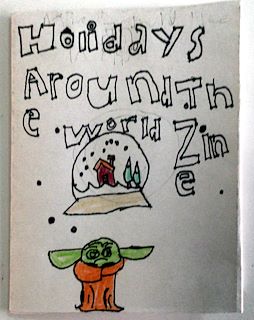 Holidays
Around Th
e World Zin
e